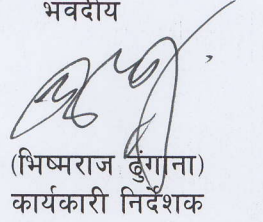 भवदीय
(भिष्मराज ढुंगाना)
कार्यकारी निर्देशक